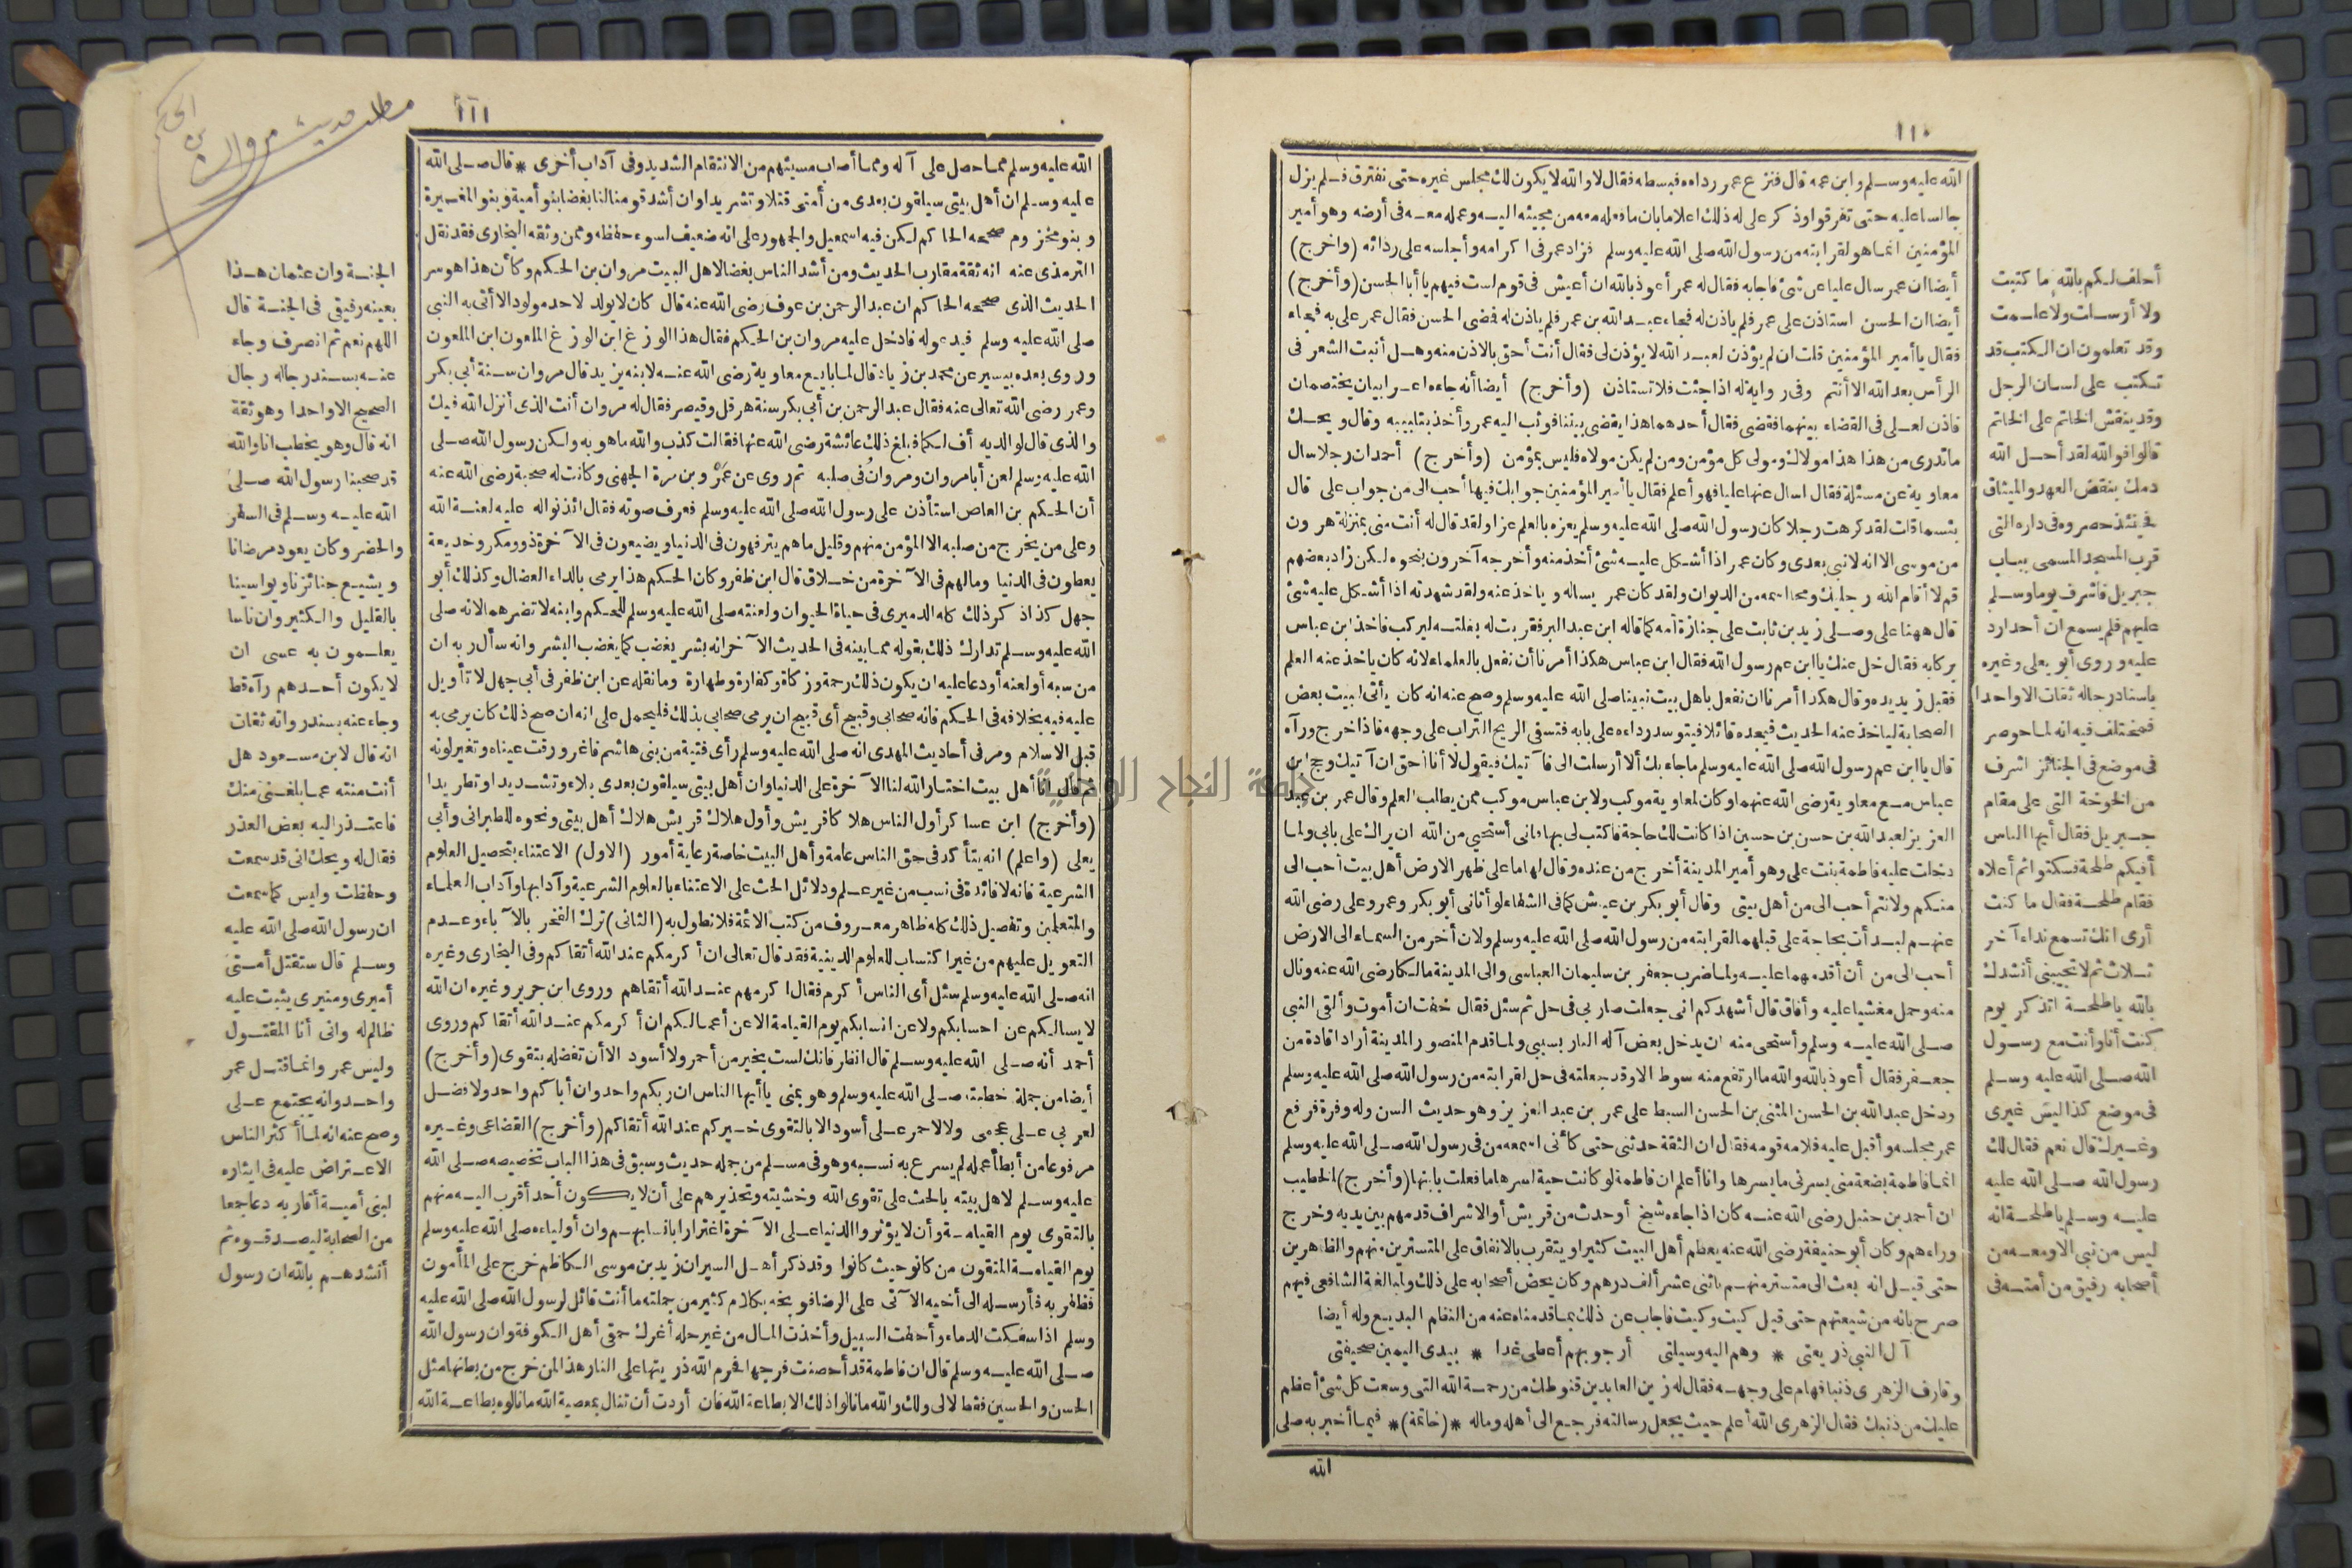 ١١٠
الله عليه وسلم وابن عمه قال فنزع عمر رداءه فبسطه فقال لا والله لا يكون لك مجلس غيره حتى نفترق فلم يزل
جالسا عليه حتى تفرقوا وذكر على له ذلك اعلاما بان ما فعله معه من مجيئه اليه وعمله معه فى أرضه وهو أمير
المؤمنين انما هو لقرابته من رسول الله صلى الله عليه وسلم فزاد عمر فى اكرامه وأجلسه على ردائه (واخرج)
أيضا ان عمر سال عليا عن شئ فاجابه فقال له عمر أعوذ بالله ان أعيش فى قوم لست فيهم يا أبا الحسن (وأخرج)
أيضا ان الحسن استاذن على عمر فلم ياذن له فجاء عبد الله بن عمر فلم ياذن له فمضى الحسن فقال عمر على به فجاء
فقال يا أمير المؤمنين قلت ان لم يؤذن لعبد الله لا يؤذن لى فقال أنت أحق بالاذن منه وهل أنبت الشعر فى
الرأس بعد الله الا أنتم وفى رواية له اذا جئت فلا تستاذن (وأخرج) أيضا أنه جاءه اعرابيان يختصمان
فاذن لعلى فى القضاء بينهما فقضى فقال أحدهما هذا يقضى بيننا فوثب اليه عمر وأخذ بتلبيبه وقال ويحك
ما تدرى من هذا هذا مولاك ومولى كل مؤمن ومن لم يكن مولاه فليس بمؤمن (وأخرج) أحمد ان رجلا سال
معاوية عن مسئلة فقال اسال عنها عليا فهو أعلم فقال يا أمير المؤمنين جوابك فيها أحب الى من جواب على قال
بئسما قلت لقد كرهت رجلا كان رسول الله صلى الله عليه وسلم يعزه بالعلم عزا ولقد قال له أنت منى بمنزلة هرون
من موسى الا انه لا نبى بعدى وكان عمر اذا أشكل عليه شئ أخذ منه وأخرجه آخرون بنحوه لكن زاد بعضهم
قم لا أقام الله رجليك ومحا اسمه من الديوان ولقد كان عمر يساله وياخذ عنه ولقد شهدته اذا أشكل عليه شئ
قال ههنا على وصلى زيد بن ثابت على جنازة أمه كما قاله ابن عبد البر فقربت له بغلته ليركب فاخذ ابن عباس
بركابه فقال خل عنك يا ابن عم رسول الله فقال ابن عباس هكذا أمرنا أن نفعل بالعلماء لانه كان ياخذ عنه العلم
فقبل زيد يده وقال هكذا أمرنا ان نفعل باهل بيت نبينا صلى الله عليه وسلم وصح عنه انه كان يأتى لبيت بعض
الصحابة لياخذ عنه الحديث فيجده قائلا فيتوسد رداءه على بابه فتسفى الريح التراب على وجهه فاذا خرج ورآه
قال يا ابن عم رسول الله صلى الله عليه وسلم ما جاء بك ألا أرسلت الى فآتيك فيقول لا أنا أحق ان آتيك وحج ابن
عباس مع معاوية رضى الله عنهما وكان لمعاوية موكب ولابن عباس موكب ممن يطالب العلم وقال عمر بن عبد
العزيز لعبد الله بن حسن بن حسين اذا كانت لك حاجة فاكتب لى بها فانى أستحيى من الله ان يراك على بابى ولما
دخلت عليه فاطمة بنت على وهو أمير المدينة أخرج من عنده وقال لها ما على ظهر الارض أهل بيت أحب الى
منكم ولانتم أحب الى من أهل بيتى وقال أبو بكر بن عياش كما فى الشفاء لو أتانى أبو بكر وعمر وعلى رضى الله
عنهم لبدأت بحاجة على قبلهما لقرابته من رسول الله صلى الله عليه وسلم ولان أخر من السماء الى الارض
أحب الى من أن أقدمهما عليه ولما ضرب جعفر بن سليمان العباسى والى المدينة مالكا رضى الله عنه ونال
منه وحمل مغشيا عليه وأفاق قال أشهدكم انى جعلت ضاربى فى حل ثم سئل فقال خفت ان أموت وألقى النبى
صلى الله عليه وسلم وأستحى منه ان يدخل بعض آله النار بسببى ولما قدم المنصور المدينة أراد اقادة من
جعفر فقال أعوذ بالله والله ما ارتفع منه سوط الا وقد جعلته فى حل لقرابته من رسول الله صلى الله عليه وسلم
ودخل عبد الله بن الحسن المثنى بن الحسن السبط على عمر بن عبد العزيز وهو حديث السن وله وفرة فرفع
عمر مجلسه وأقبل عليه فلامه قومه فقال ان الثقة حدثنى حتى كأنى اسمعه من فى رسول الله صلى الله عليه وسلم
انما فاطمة بضعة منى يسرنى ما يسرها وانا أعلم ان فاطمة لو كانت حية لسرها ما فعلت بابنها (وأخرج) الخطيب
ان أحمد بن حنبل رضى الله عنه كان اذا جاءه شيخ أو حدث من قريش أو الاشراف قدمهم بين يديه وخرج
وراءهم وكان أبو حنيفة رضى الله عنه يعظم أهل البيت كثيرا ويتقرب بالانفاق على المتسترين منهم والظاهرين
حتى قيل انه بعث الى متستر منهم باثنى عشر ألف درهم وكان يحض أصحابه على ذلك ولمبالغة الشافعى فيهم
صرح بانه من شيعتهم حتى قيل كيت وكيت فاجاب عن ذلك بما قدمناه عنه من النظام البديع وله أيضا
آل النبى ذريعتى * وهم اليه وسيلتى أرجو بهم أعطى غدا * بيدى اليمين صحيفتى
وقارف الزهرى ذنبا فهام على وجهه فقال له زين العابدين قنوطك من رحمة الله التى وسعت كل شئ أعظم
عليك من ذنبك فقال الزهرى الله أعلم حيث يجعل رسالته فرجع الى أهله وماله *(خاتمة)* فيما أخبر به صلى
الله
أحلف لكم بالله ما كتبت
ولا أرسلت ولا علمت
وقد تعلمون ان الكتب قد
تكتب على لسان الرجل
وقد ينقش الخاتم على الخاتم
قالوا فوالله لقد أحل الله
دمك بنقض العهد والميثاق
فحينئذ حصروه فى داره التى
قرب المسجد المسمى بباب
جبريل فاشرف يوما وسلم
عليهم فلم يسمع ان أحدا رد
عليه وروى أبو يعلى وغيره
باسناد رجاله ثقات الا واحدا
فمختلف فيه انه لما حوصر
فى موضع فى الجنائز اشرف
من الخوخة التى على مقام
جبريل فقال أيها الناس
أفيكم طلحة فسكتوا ثم أعلاه
فقام طلحة فقال ما كنت
أرى انك تسمع نداء آخر
ثلاث ثم لا تجيبنى أنشدك
بالله يا طلحة اتذكر يوم
كنت أنا وأنت مع رسول
الله صلى الله عليه وسلم
فى موضع كذا ليس غيرى
وغيرك قال نعم فقال لك
رسول الله صلى الله عليه
عليه وسلم يا طلحة انه
ليس من نبى الا ومعه من
أصحابه رفيق من أمته فى
١١١
مطلب حديث مروان بن الحكم
الله عليه وسلم مما حصل على آله ومما أصاب مسيئهم من الانتقام الشديد وفى آداب أخرى * قال صلى الله
عليه وسلم ان أهل بيتى سيلقون بعدى من أمتى قتلا وتشريدا وان أشد قومنا لنا بغضا بنو أمية وبنو المغيرة
وبنو مخزوم صححه الحاكم لكن فيه اسمعيل والجمهور على انه ضعيف لسوء حفظه وممن وثقه البخارى فقد نقل
الترمذى عنه انه ثقة مقارب الحديث ومن أشد الناس بغضا لاهل البيت مروان بن الحكم وكأن هذا هو سر
الحديث الذى صححه الحاكم ان عبد الرحمن بن عوف رضى الله عنه قال كان لا يولد لاحد مولود الا أتى به النبى
صلى الله عليه وسلم فيدعو له فادخل عليه مروان بن الحكم فقال هذا الوزغ ابن الوزغ الملعون ابن الملعون
وروى بعده بيسير عن محمد بن زياد قال لما بايع معاوية رضى الله عنه لابنه يزيد قال مروان سنة أبى بكر
وعمر رضى الله تعالى عنه فقال عبد الرحمن بن أبى بكر سنة هرقل وقيصر فقال له مروان أنت الذى أنزل الله فيك
والذى قال لوالديه أف لكما فبلغ ذلك عائشة رضى الله عنها فقالت كذب والله ما هو به ولكن رسول الله صلى
الله عليه وسلم لعن أبا مروان ومروان فى صلبه ثم روى عن عمرو بن مرة الجهنى وكانت له صحبة رضى الله عنه
أن الحكم بن العاص استأذن على رسول الله صلى الله عليه وسلم فعرف صوته فقال ائذنوا له عليه لعنة الله
وعلى من يخرج من صلبه الا المؤمن منهم وقليل ما هم يترفهون فى الدنيا ويضيعون فى الآخرة ذوو مكر وخديعة
يعطون فى الدنيا وما لهم فى الآخرة من خلاق قال ابن ظفر وكان الحكم هذا يرمى بالداء العضال وكذلك أبو
جهل كذا ذكر ذلك كله الدميرى فى حياة الحيوان ولعنته صلى الله عليه وسلم للحكم وابنه لا تضرهما لانه صلى
الله عليه وسلم تدارك ذلك بقوله مما بينه فى الحديث الآخر انه بشر يغضب كما يغضب البشر وانه سأل ربه ان
من سبه أو لعنه أو دعا عليه ان يكون ذلك رحمة وزكاة وكفارة وطهارة وما نقله عن ابن ظفر فى أبى جهل لا تأويل
عليه فيه بخلافه فى الحكم فانه صحابى وقبيح أى قبيح ان يرمى صحابى بذلك فليحمل على انه ان صح ذلك كان يرمى به
قبل الاسلام ومر فى أحاديث المهدى انه صلى الله عليه وسلم رأى فتية من بنى هاشم فاغرورقت عيناه وتغير لونه
ثم قال انا أهل بيت اختار الله لنا الآخرة على الدنيا وان أهل بيتى سيلقون بعدى بلاء وتشديدا وتطريدا
(وأخرج) ابن عساكر أول الناس هلاكا قريش وأول هلاك قريش هلاك أهل بيتى ونحوه للطبرانى وأبى
يعلى (واعلم) انه يتأكد فى حق الناس عامة وأهل البيت خاصة رعاية أمور (الاول) الاعتناء بتحصيل العلوم
الشرعية فانه لا فائدة فى نسب من غير علم ودلائل الحث على الاعتناء بالعلوم الشرعية وآدابها وآداب العلماء
والمتعلمين وتفصيل ذلك كله ظاهر معروف من كتب الائمة فلا نطول به (الثانى) ترك الفخر بالآباء وعدم
التعويل عليهم من غير اكتساب للعلوم الدينية فقد قال تعالى ان أكرمكم عند الله أتقاكم وفى البخارى وغيره
انه صلى الله عليه وسلم سئل أى الناس أكرم فقال اكرمهم عند الله أتقاهم وروى ابن جرير وغيره ان الله
لا يسالكم عن احسابكم ولا عن انسابكم يوم القيامة الا عن أعمالكم ان أكرمكم عند الله أتقاكم وروى
أحمد أنه صلى الله عليه وسلم قال انظر فانك لست بخير من أحمر ولا أسود الا أن تفضله بتقوى (وأخرج)
أيضا من جملة خطبته صلى الله عليه وسلم وهو بمنى يا أيها الناس ان ربكم واحد وان أباكم واحد ولا فضل
لعربى على عجمى ولا لاحمر على أسود الا بالتقوى خيركم عند الله أتقاكم (وأخرج) القضاعى وغيره
مرفوعا من أبطأ عمله لم يسرع به نسبه وهو فى مسلم من جمله حديث وسبق فى هذا الباب تخصيصه صلى الله
عليه وسلم لاهل بيته بالحث على تقوى الله وخشيته وتحذيرهم على أن لا يكون أحد أقرب اليه منهم
بالتقوى يوم القيامة وأن لا يؤثروا الدنيا على الآخرة اغترارا بانسابهم وان أولياءه صلى الله عليه وسلم
يوم القيامة المتقون من كانو حيث كانوا وقد ذكر أهل السير ان زيد بن موسى الكاظم خرج على المأمون
فظفر به فأرسله الى أخيه الآتى على الرضا فوبخه بكلام كثير من جملته ما أنت قائل لرسول الله صلى الله عليه
وسلم اذا سفكت الدماء وأخفت السبيل وأخذت المال من غير حله أغرك حمقى أهل الكوفة وان رسول الله
صلى الله عليه وسلم قال ان فاطمة قد أحصنت فرجها فحرم الله ذريتها على النار هذا لمن خرج من بطنها مثل
الحسن والحسين فقط لا لى ولك والله ما نالوا ذلك الا بطاعة الله فان أردت أن تنال بمعصية الله ما نالوه بطاعة الله
الجنة وان عثمان هذا
بعينه رفيقى فى الجنة قال
اللهم نعم ثم انصرف وجاء
عنه بسند رجاله رجال
الصحيح الا واحدا وهو ثقة
انه قال وهو يخطب انا والله
قد صحبنا رسول الله صلى
الله عليه وسلم فى السفر
والحضر وكان يعود مرضانا
ويشيع جنائزنا ويواسينا
بالقليل والكثير وان ناسا
يعلمون به عسى ان
لا يكون أحدهم رآه قط
وجاء عنه بسند رواته ثقات
انه قال لابن مسعود هل
أنت منته عما بلغنى منك
فاعتذر اليه بعض العذر
فقال له ويحك انى قد سمعت
وحفظت وليس كما سمعت
ان رسول الله صلى الله عليه
وسلم قال ستقتل أمتى
أميرى ومنبرى يثبت عليه
ظالم له وانى أنا المقتول
وليس عمر وانما قتل عمر
واحد وانه يجتمع على
وصح عنه انه لما أكثر الناس
الاعتراض عليه فى ايثاره
لبنى أمية أقاربه دعا جمعا
من الصحابة ليصدقوه ثم
أنشدهم بالله ان رسول
جامعة النجاح الوطنية